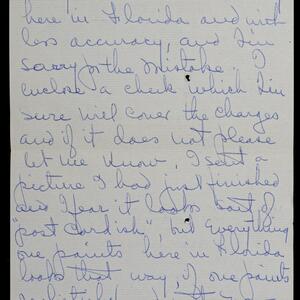 here in Florida and with
less accuracy, and I'm
sorry for the mistake. I
enclose a check which I'm
sure will cover the charges
and if it does not please
let me know. I sent a
picture I had just finished
and I fear it looks sort of
"post cardish", but everything
one paints here in Florida
looks that way, if one paints